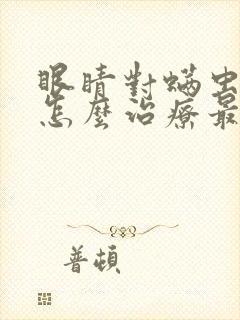 眼睛對螨虫
怎麼治療最
普頓